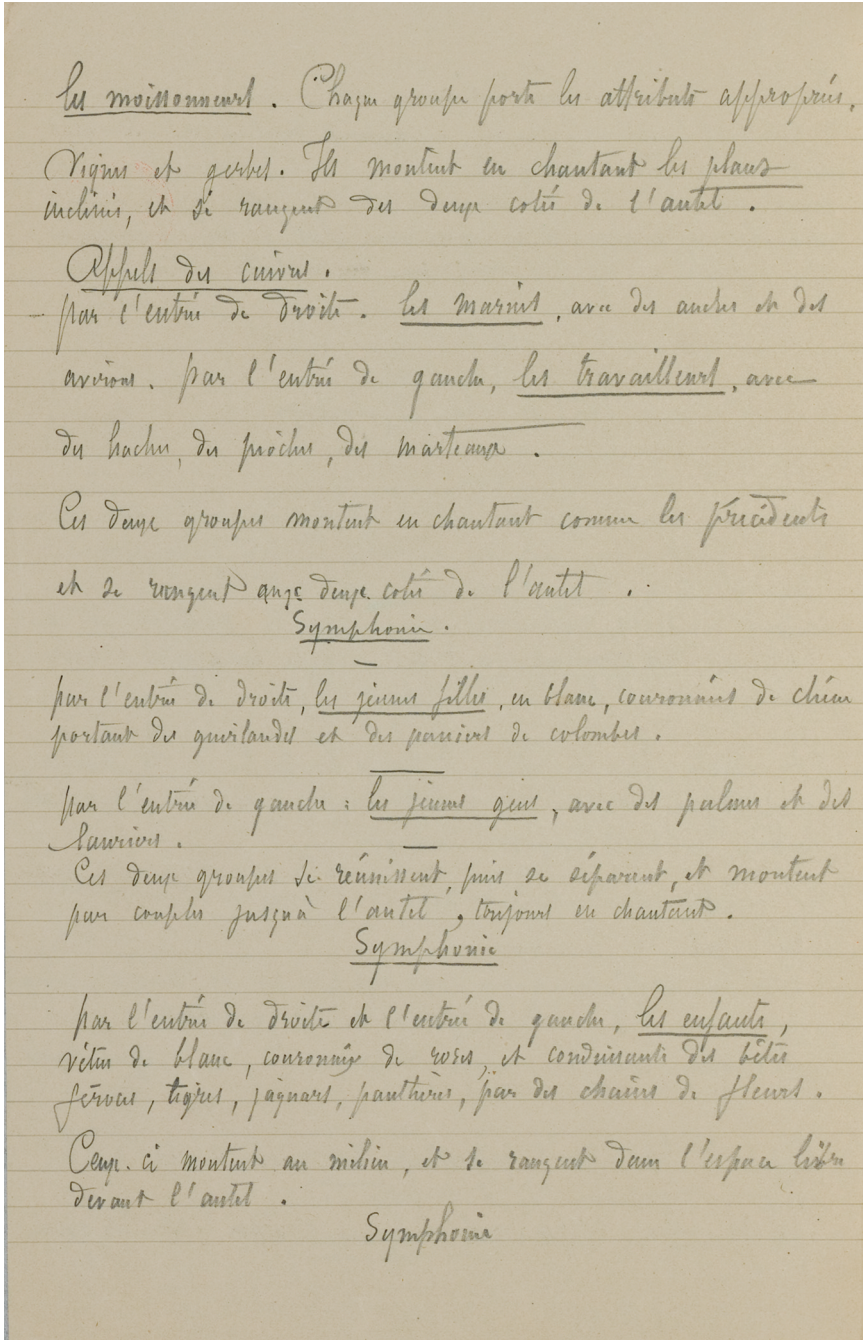 les moissonneurs. Chaque groupe porte les attributs appropriés,
vignes et gerbes. Ils montent en chantant les plans
inclinés, et se rangent des deux cotés de l'autel.
Appels des cuivres.
- par l'entrée de droite. les marins, avec des ancres et des
avirons. par l'entrée de gauche, les travailleurs, avec
des haches, des pioches, des marteaux.
Ces deux groupes montent en chantant comme les précédents
et se rangent aux deux cotés de l'autel.
Symphonie.
par l'entrée de droite, les jeunes filles, en blanc, couronnées de chêne
portant des guirlandes et des paniers de colombes.
par l'entrée de gauche : les jeunes gens, avec des palmes et des
lauriers.
Ces deux groupes se réunissent, puis se séparent, et montent
par couples jusqu'à l'autel, toujours en chantant.
Symphonie
par l'entrée de droite et l'entrée de gauche, les enfants,
vétus de blanc, couronnés de roses, et conduisants des bêtes
féroces, tigres, jaguars, panthères, par des chaines de fleurs.
Ceux-ci montent au milieu, et se rangent dans l'espace libre
devant l'autel.
Symphonie